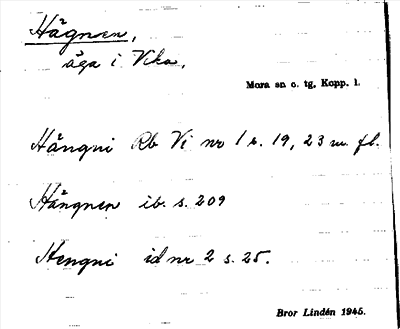 Hägnsen,
äga i Vika.
Mora sn o. tg, Kopp. l.
Hängni Rb Vi nr 1 s. 19, 23 m. fl.
Hängnen ib. s. 209
Hengni id nr 2 s. 25.
Bror Lindén 1945.